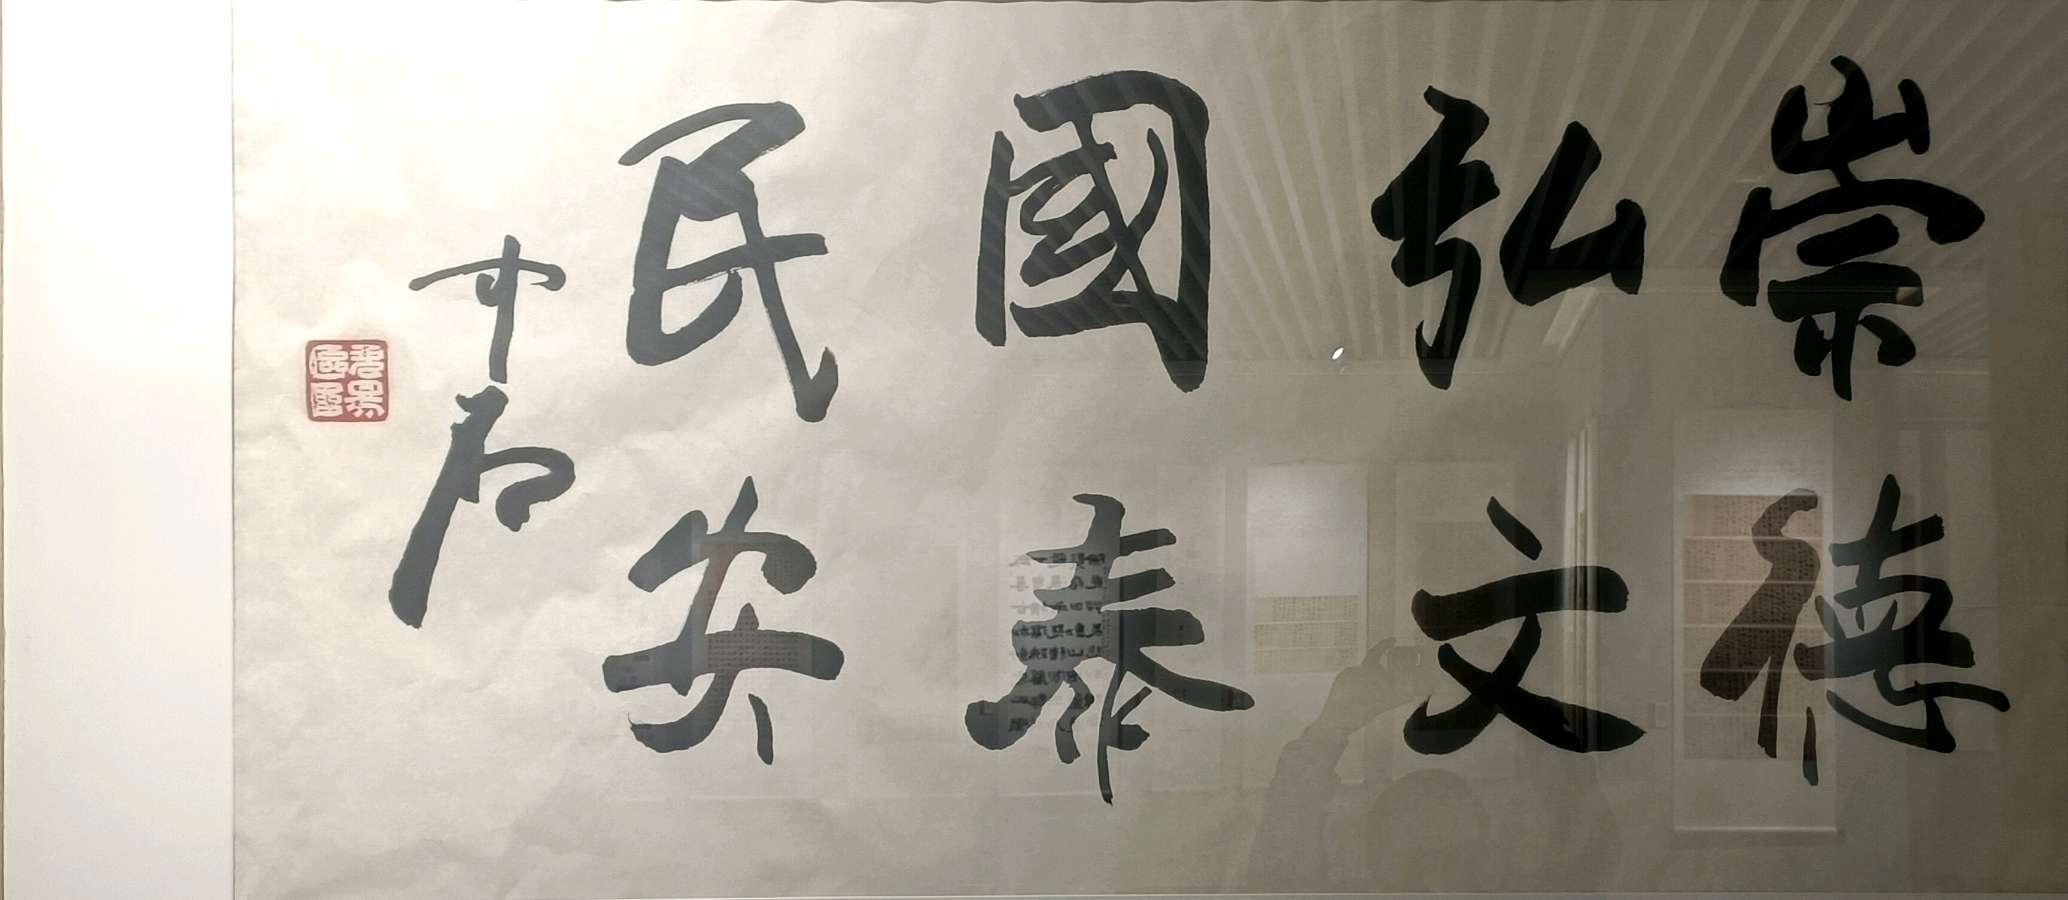 崇德
弘文
國泰
民安
中石